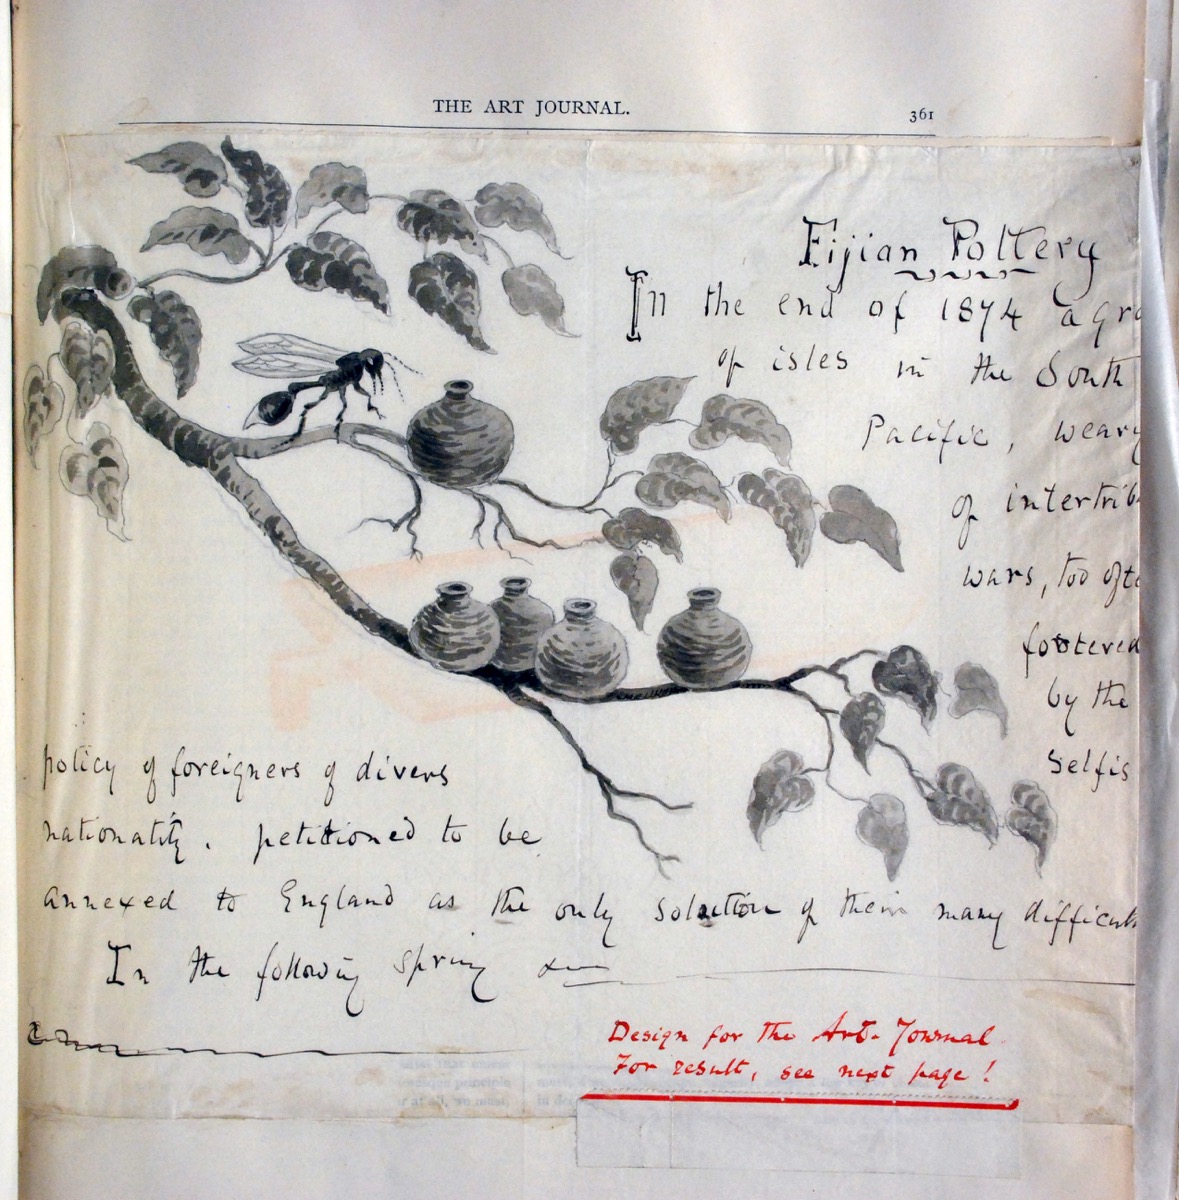 THE ART JOURNAL.
361
Fijian Pottery
In the end of 1874 a gro
of isles in the South
Pacific, weary
of intertrib
wars, too ofte
fostered
by the
Selfis
policy of foreigners of divers
nationality, petitioned to be
annexed to England as the only solution of their many difficult
In the following spring
Design for the Art-Journal
For result, see next page!